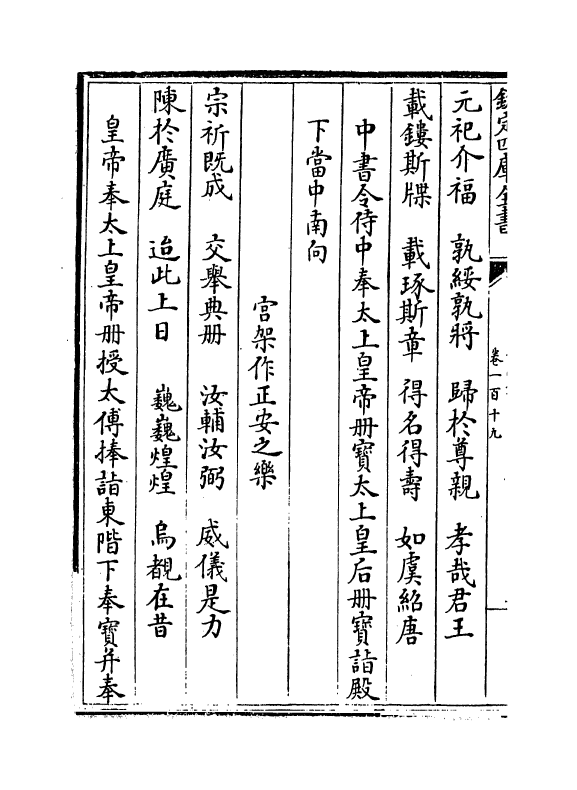 欽定四庫全書
卷一百十九
元祀介福　孰綏孰將　歸於尊親　孝哉君王
載鏤斯牒　載琢斯章　得名得壽　如虞紹唐
中書令侍中奉太上皇帝册寶太上皇后册寶詣殿
下當中南向
宮架作正安之樂
宗祈既成　交舉典册　汝輔汝弼　威儀是力
陳於廣庭　迨此上日　巍巍煌煌　烏覩在昔
皇帝奉太上皇帝册授太傅捧詣東階下奉寶并奉